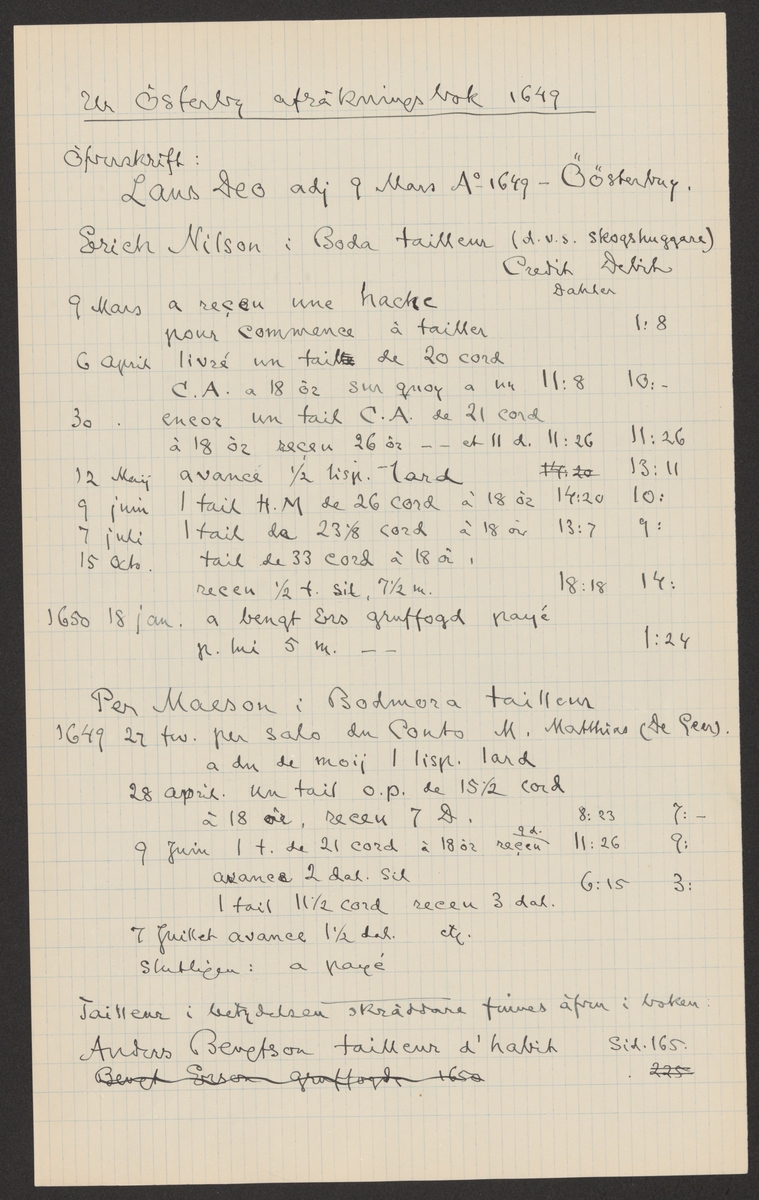 Ur Österby afräkningsbok 1649
Öfverskrift:
Laus Deo adj 9 Mars Aº 1649 – Öösterbuy.
Erich Nilson i Boda tailleur (d.v.s. skogshuggare)
Credit Debit
Dahler
9 Mars a reçeu une hacke
pour commence à tailler 1:8
6 april livré un tail de 20 cord
C.A. a 18 öz sur quoy a 11:8 10:-
30 . encor un tail C.A. de 21 cord
à 18 öz reçeu 26 öz – – et 11 d. 11:26 11:26
12 Maij avance 1/2 lisp. lard 14:20 13:11
9 juin 1 tail H.M de 26 cord à 18 öz 14:20 10:
7 juli 1 tail de 23 1/8 cord à 18 ör 13:7 9:
15 Octo. tail de 33 cord à 18 ö.
receu 1/2 t. sil, 7 1/2 m. 18:18 14:
1650 18 jan. a bengt Ers gruffogd payé
p. lui 5 m. – – 1:24
Per Maeson i Bodmora tailleur
1649 27 fev. per salo du Conto M. Matthias (De Geer).
a du de moij 1 lisp. lard
28 april. un tail o.p. de 15 1/2 cord
à 18 ör, receu 7 D. 8:23 7:–
9 d.
9 Juin 1 t. de 21 cord à 18 öz reçeu 11:26 9:
avance 2 dal. sil
6:15 3:
1 tail 11 1/2 cord receu 3 dal.
7 Juillet avance 1 1/2 dal. etc.
Slutligen: a payé
Tailleur i betydelsen skräddare finnes äfven i boken:
Anders Bengtson tailleur d'habit Sid. 165.
Bengt Ersson gruffogde 1650 225